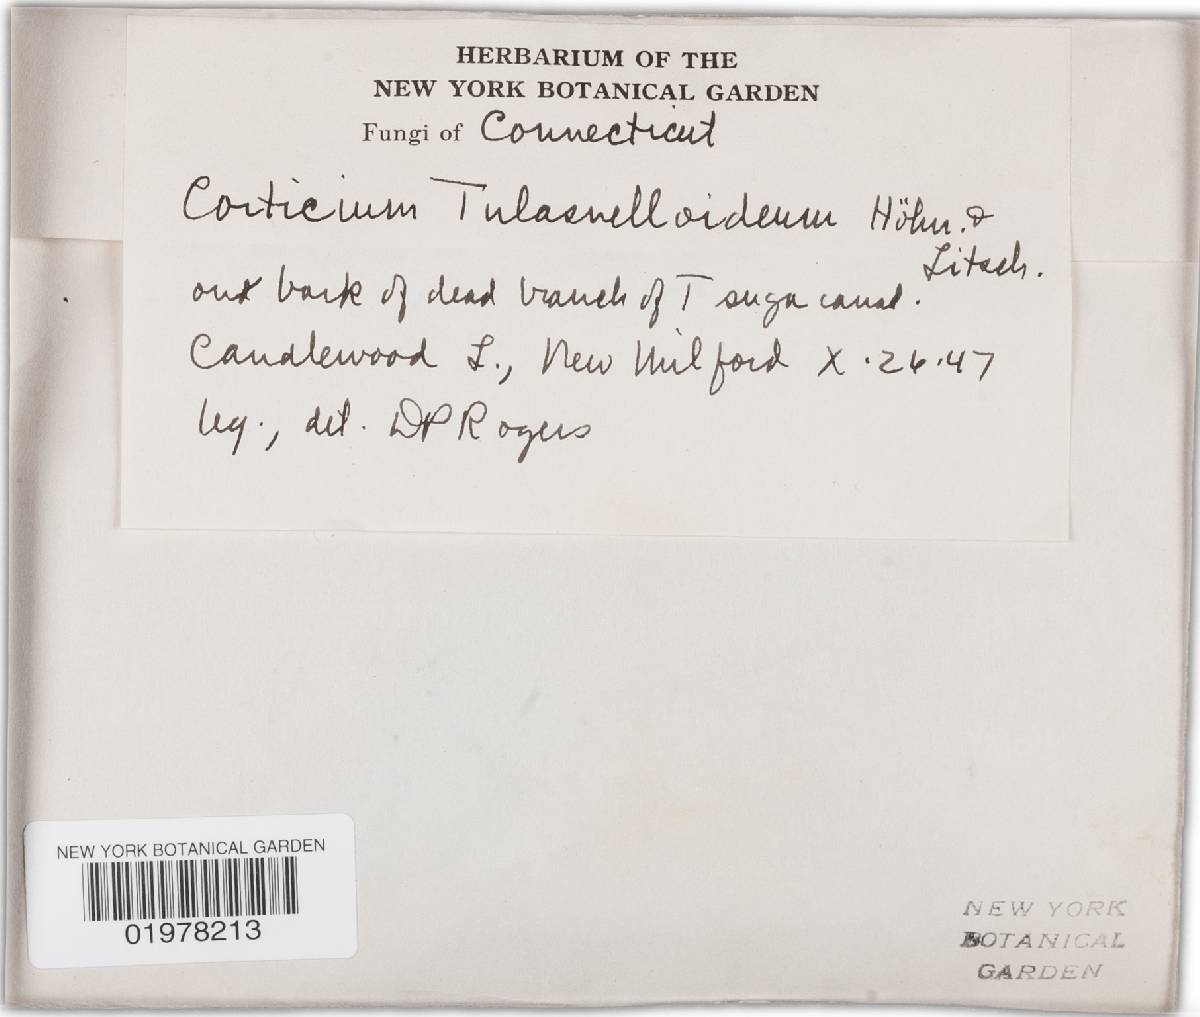 HERBARIUM OF THE
NEW YORK BOTANICAL GARDEN
Fungi of Connecticut
Corticium Tulasnelloideum Höhn. &
Litsch.
on bark of dead branch of Tsuga canad.
Candlewood L., New Milford X.26.47
leg., det. DP Rogers
NEW YORK BOTANICAL GARDEN
01978213
NEW YORK
BOTANICAL
GARDEN